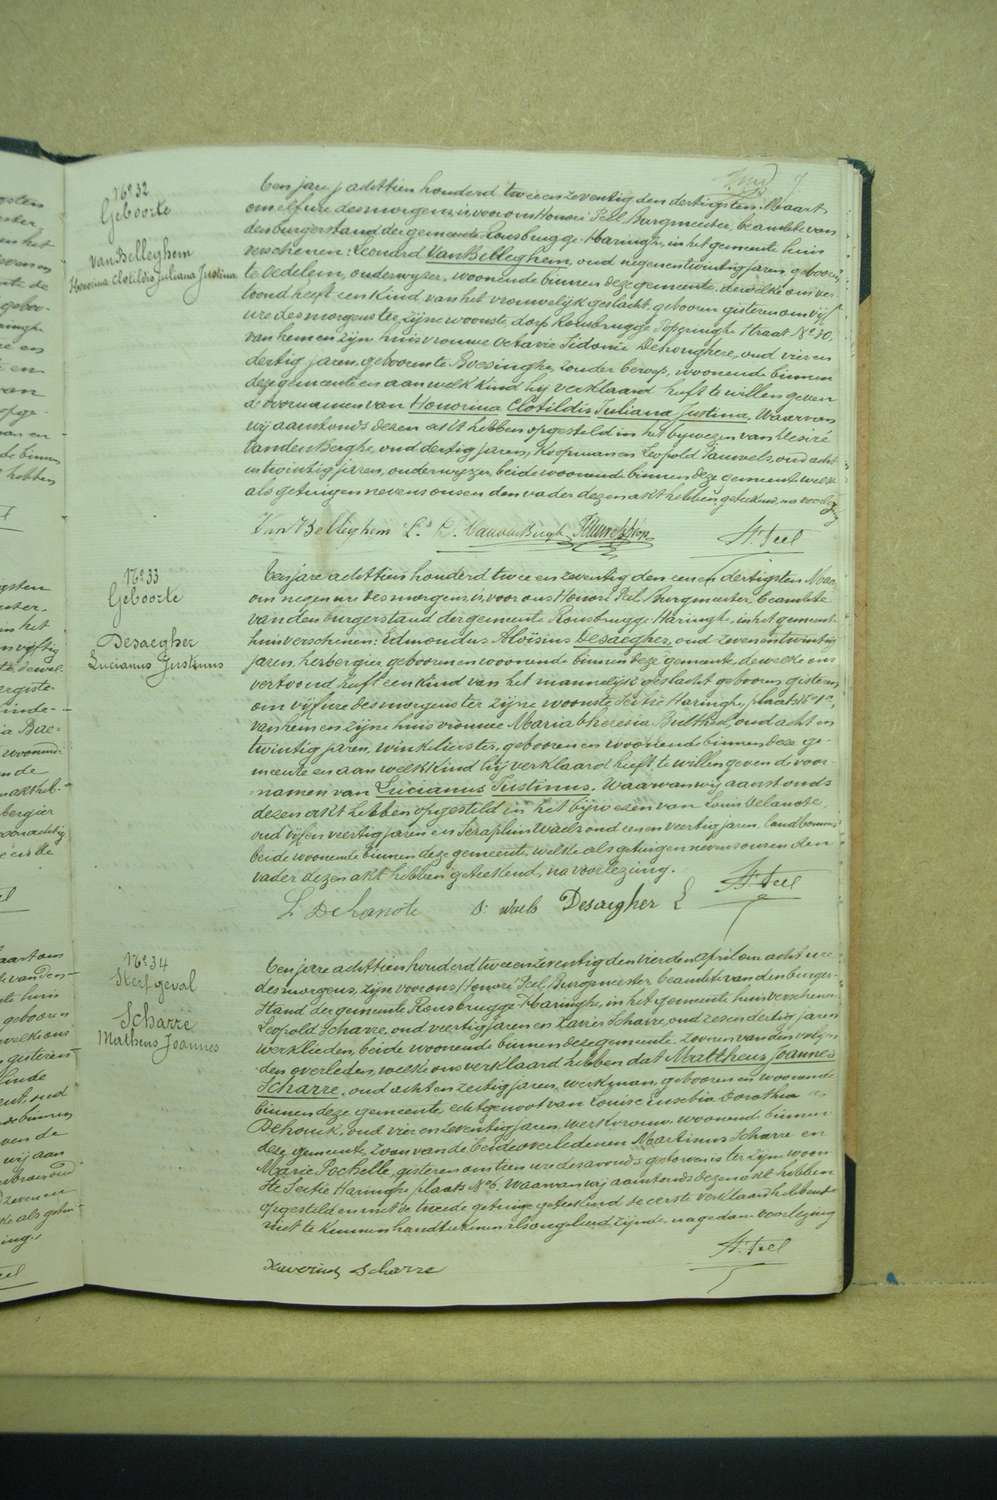 7
No 32
Geboorte
Van Belleghem
Honorina Clotildis Juliana Justina
Een jare achttien honderd twee en zeventig den dertigsten Maart
om elf ure des morgens, is voor ons Honoré Feel, Burgmeester, beambte van
den burgerstand der gemeente Rousbrugge-Haringhe, in het gemeente huis
verschenen: Leonard Van Belleghem, oud negenentwintig jaren, geboren
te Oedelem, onderwyzer, woonende binnen deze gemeente, dewelke ons ver-
toond heeft een Kind van het vrouwelyk geslacht, geboren gisteren om vyf
ure des morgens te zyne woonste, dorp Rousbrugge Poperinghe Straat No 30,
van hem en zyne huisvrouwe Octavie Sidonie Dehonghere, oud vier en
dertig jaren, geboren te Boesinghe, zonder beroep, woonende binnen
deze gemeente en aan welk kind hy verklaard heeft te willen geven
de voornamen van Honorina Clotildis Juliana Justina. Waarvan
wy aanstonds dezen akt hebben opgesteld in het bywezen van Desiré
Vanden Berghe, oud dertig jaren, Koopman en Leopold Pauwels, oud acht
en twintig jaren, onderwyzer, beide woonende binnen deze gemeente welke
als getuigen nevens ons en den vader dezen akt hebben geteekend, na voorlezing
Van Belleghem L. D. Vandenbergh Pauwels Leop H. Feel
No 33
Geboorte
Desaegher
Lucianus Justinus
Een jare achttien honderd twee en zeventig den een en dertigsten Maart
om negen ure des morgens, is voor ons Honoré Feel, Burgmeester, beambte
van den burgerstand der gemeente Rousbrugge Haringhe, in het gemeente
huis verschenen: Edmondus Aloïsius Desaegher, oud zeven en twintig
jaren, herbergier, geboren en woonende binnen deze gemeente, dewelke ons
vertoond heeft een kind van het mannelyk geslacht geboren gisteren
om vyf ure des morgens ter zyne woonste, Sectie Haringhe, plaats No 10,
van hem en zyne huisvrouwe Maria Theresia Butthol, oud acht en
twintig jaren, winkelierster, geboren en woonende binnen deze ge-
meente en aan welk kind hy verklaard heeft, te willen geven de voor-
namen van Lucianus Justinus. Waarvan wy aanstonds
dezen akt hebben opgesteld in het bywezen van Louis Delanote,
oud vyf en veertig jaren en Seraphin Waels oud een en veertig jaren, landbouwers
beide woonende binnen deze gemeente, welke als getuigen nevens ons en den
vader dezen akt hebben geteekend, na voorlezing.
L Delanote S. Waels Desaegher E H. Feel
No 34
Sterfgeval
Scharre
Matheus Joannes
Een jare achttien honderd twee en zeventig den vierden april om acht ure
des morgens, zyn voor ons Honoré Feel, Burgmeester beambte van den burger-
stand der gemeente Rousbrugge-Haringhe, in het gemeente huis verschenen
Leopold Scharre, oud veertig jaren en Xavier Scharre, oud zes en dertig jaren
werklieden, beide woonende binnen deze gemeente, zoonen van den volgen-
den overleden, welke ons verklaard hebben dat Mattheus Joannes
Scharre, oud acht en zestig jaren, werkman, geboren en woonende
binnen deze gemeente echtgenoot van Louise Eusebia Dorothea
Dehouck, oud vier en zeventig jaren, werkvrouw, woonende binnen
deze gemeente, zoon van de beide overledenen Martinus Scharre en
Marie Pockelle, gisteren om tien ure des avonds gestorven is ter zyne woon-
ste Sectie Haringhe plaats No 6. Waarvan wy aanstonds dezen akt hebben
opgesteld en met de tweede getuige geteekend de eerste verklaard hebbende
niet te kunnen handteekenen als ongeleerd zynde, na gedane voorlezing
H. Feel
Xaverius Scharre